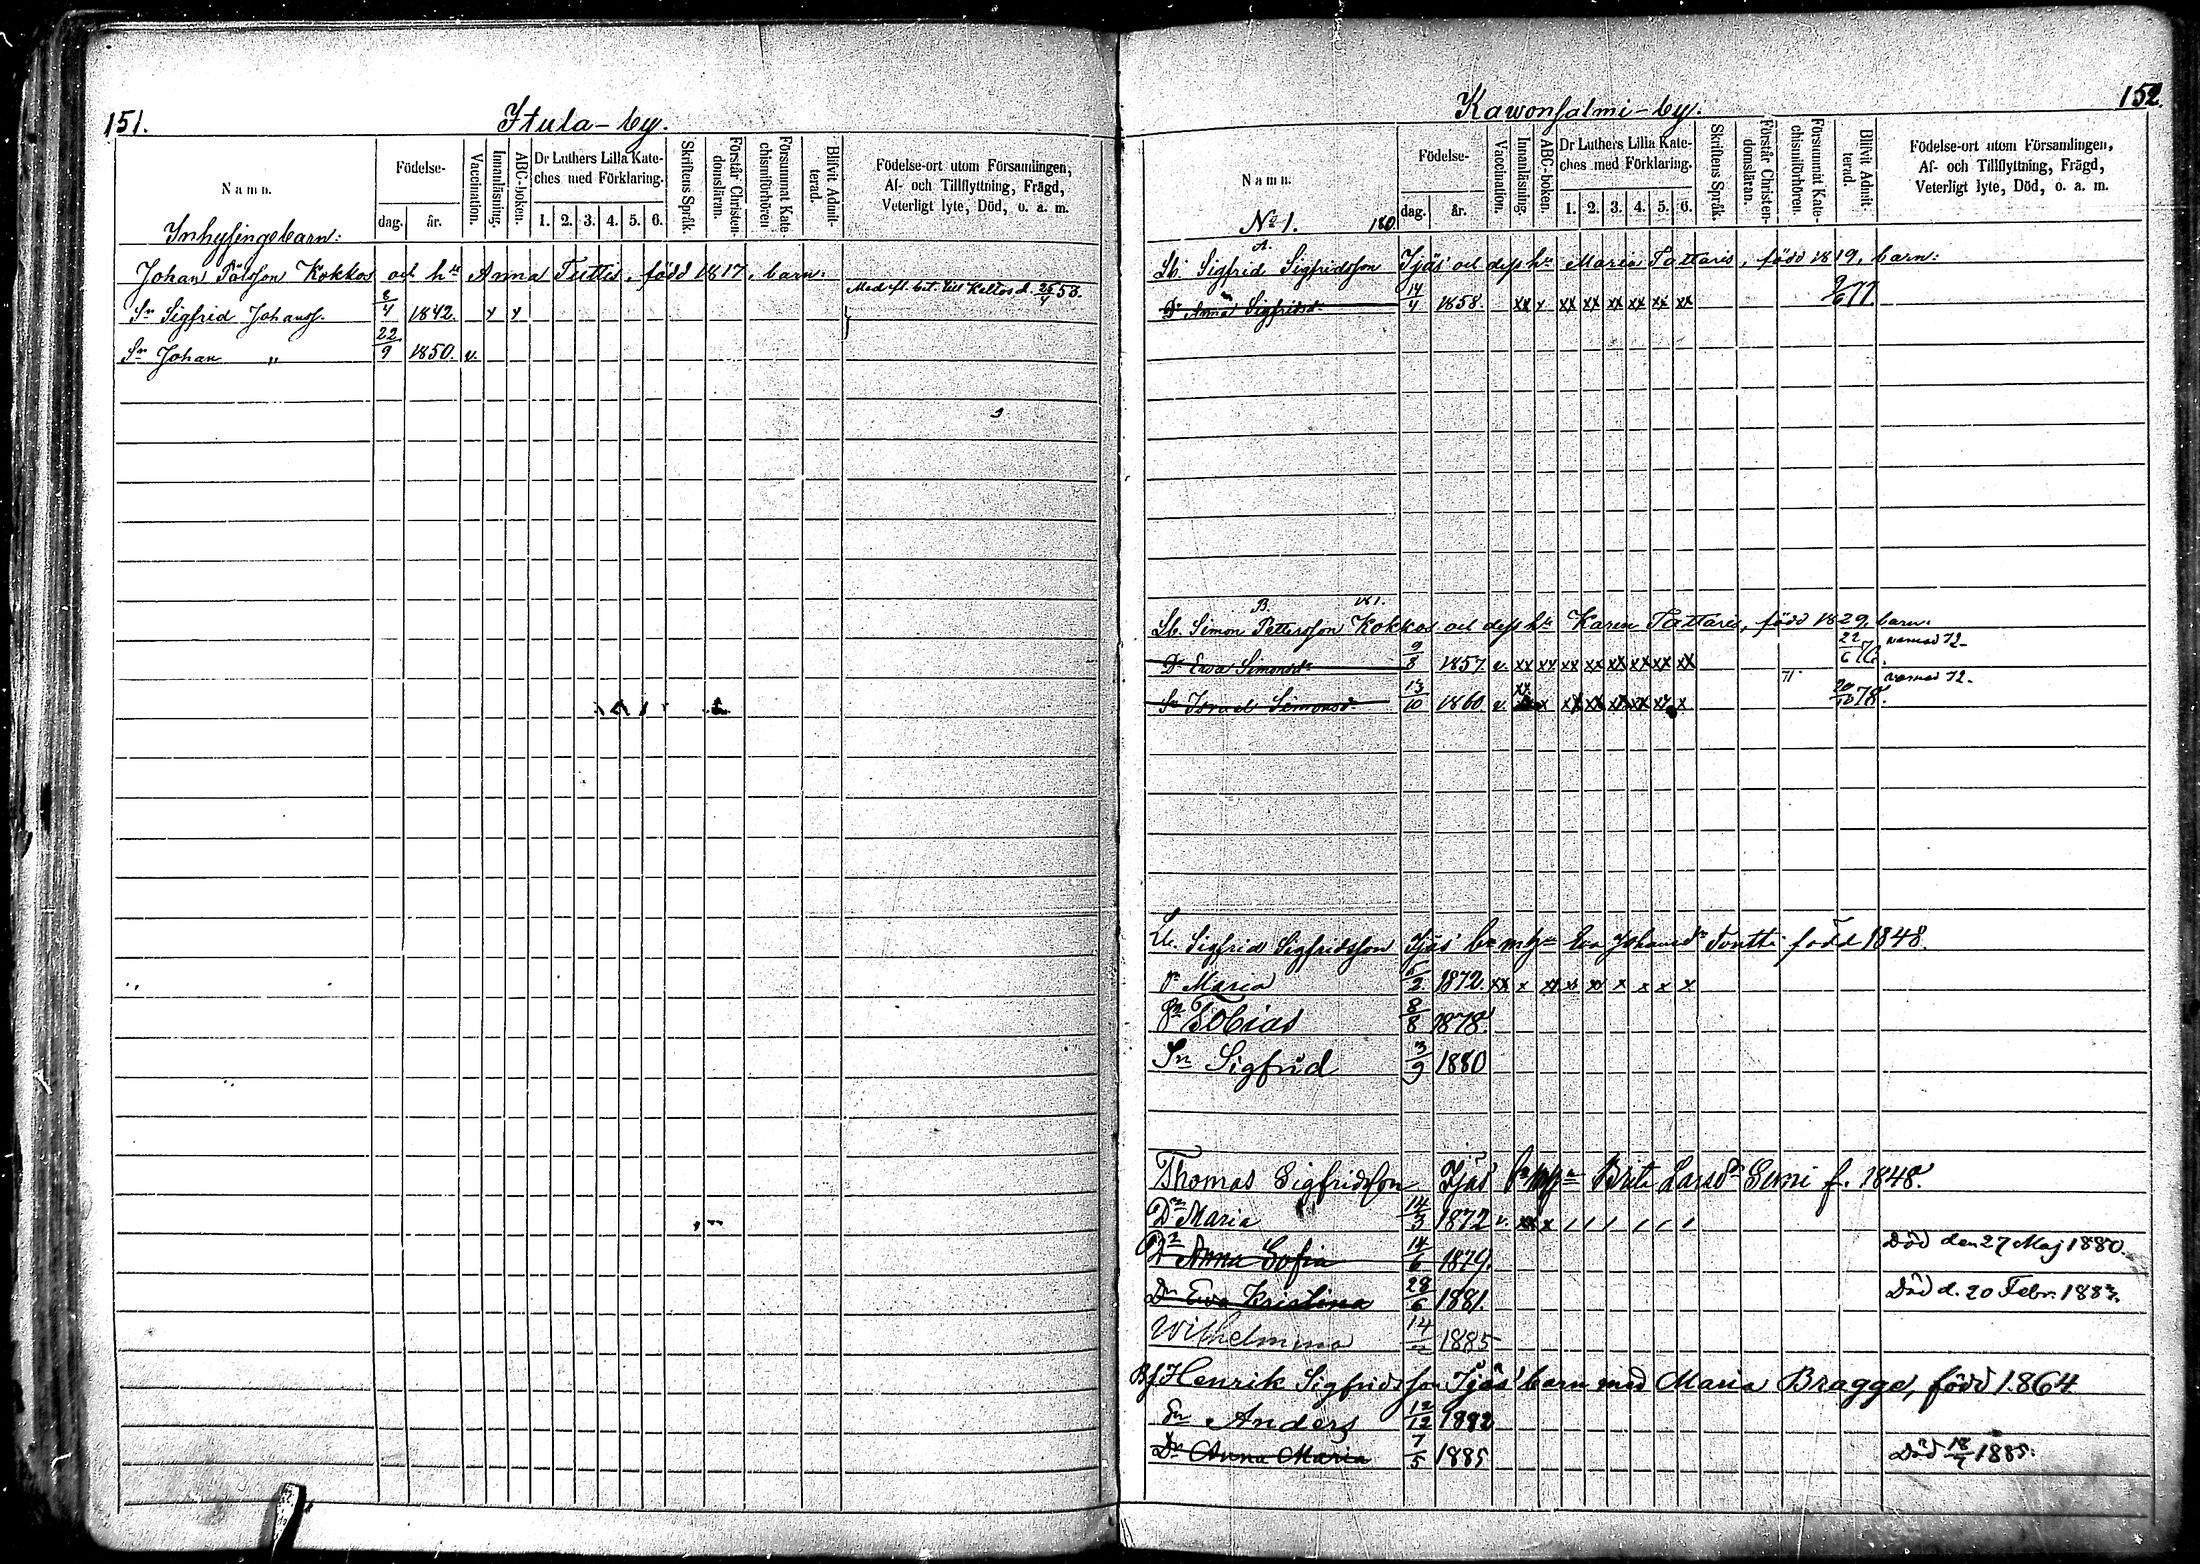 151.
Itula-by.
Namn.
Födelse-
dag.
år.
Vaccination.
Innanläsning.
ABC-boken.
Dr Luthers Lilla Kate-
ches med Förklaring.
1. 2. 3. 4. 5. 6.
Skriftens Språk.
Förstår Christen-
domsläran.
Försummat Kate-
chismiförhören
Blifvit Admit-
terad.
Födelse-ort utom Församlingen,
Af- och Tillflyttning, Frägd,
Veterligt lyte, Död, o. a. m.
Inhysingebarn:
Johan Pålsson Kokkos och hu Anna Tuttis, född 1817, barn:
Sn Sigfrid Johanss. 8/4 1842. x x Med fl. bet. till Keltos d. 25/4 53.
Sn Johan " 22/9 1850. v.
152.
Kawonsalmi-by.
Namn.
Födelse-
dag.
år.
Vaccination.
Innanläsning.
ABC-boken.
Dr Luthers Lilla Kate-
ches med Förklaring.
1. 2. 3. 4. 5. 6.
Skriftens Språk.
Förstår Christen-
domsläran.
Försummat Kate-
chismiförhören.
Blifvit Admit-
terad.
Födelse-ort utom Församlingen,
Af- och Tillflyttning, Frägd,
Veterligt lyte, Död, o. a. m.
No 1. 180.
A.
Lb. Sigfrid Sigfridsson Tjäs' och dess hu Maria Tattaris, född 1819, barn:
Dr Anna Sigfridsd. 14/4 1858. xx x xx xx xx xx xx xx 77
B. 181.
Lb. Simon Pettersson Kokkos och dess hu Karin Tattaris, född 1829, barn:
Dr Ewa Simonsdr 9/8 1857 v. xx xx xx xx xx xx xx xx 22/6 76. warnad 72.
Sn Israel Simonss. 13/10 1860 v. xx x xx xx xx xx xx x 71. 78. warnad 72.
Sigfrid Sigfridsson Tjäs' bn m hu Eva Johansdr Tontti född 1848.
Dr Maria 5/2 1872 xx x xx x xx x x x x
Sn Tobias 8/8 1878.
Sn Sigfrid 3/9 1880
Thomas Sigfridsson Tjäs' bn m hu Brita Larsdr Semi f. 1848.
Dr Maria 14/3 1872 v. xx x / / / / / /
Dr Anna Sofia 14/6 1879. Död den 27 Maj 1880.
Dr Ewa Kristina 28/6 1881. Död d. 20 Febr. 1883.
Wilhelmina 14 1885
Henrik Sigfridsson Tjäs' barn med Maria Bragge, född 1864
Sn Anders 12/12 1882
Dr Anna Maria 7/5 1885 Död 18 1885.